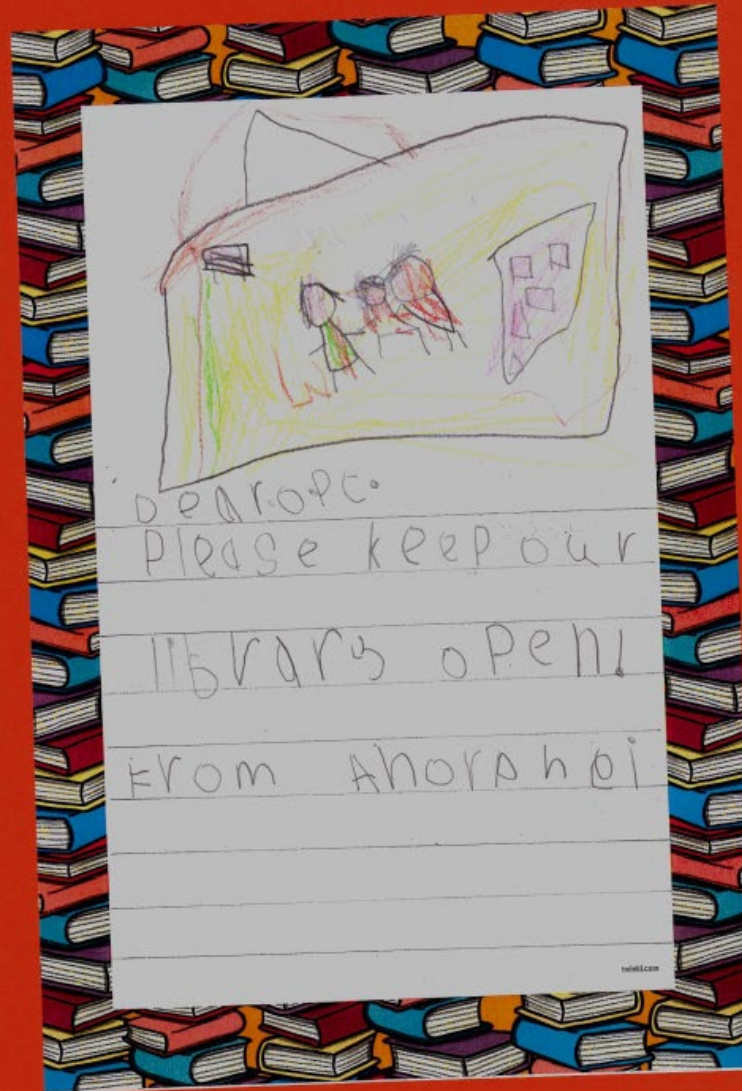 Dear OPC.
Please keep our
library open!
From
twinkl.com